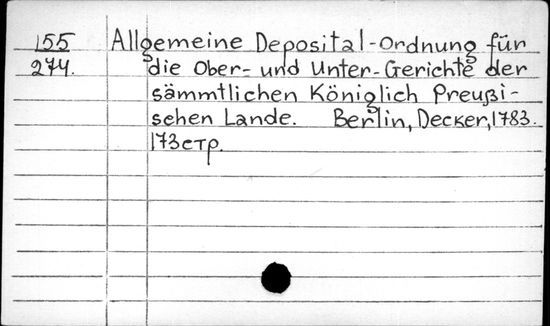 155 Allgemeine Deposital-Ordnung für
274. die Ober- und Unter-Gerichte der
sämmtlichen Königlich Preußi-
schen Lande. Berlin, Decker, 1783.
173стр.